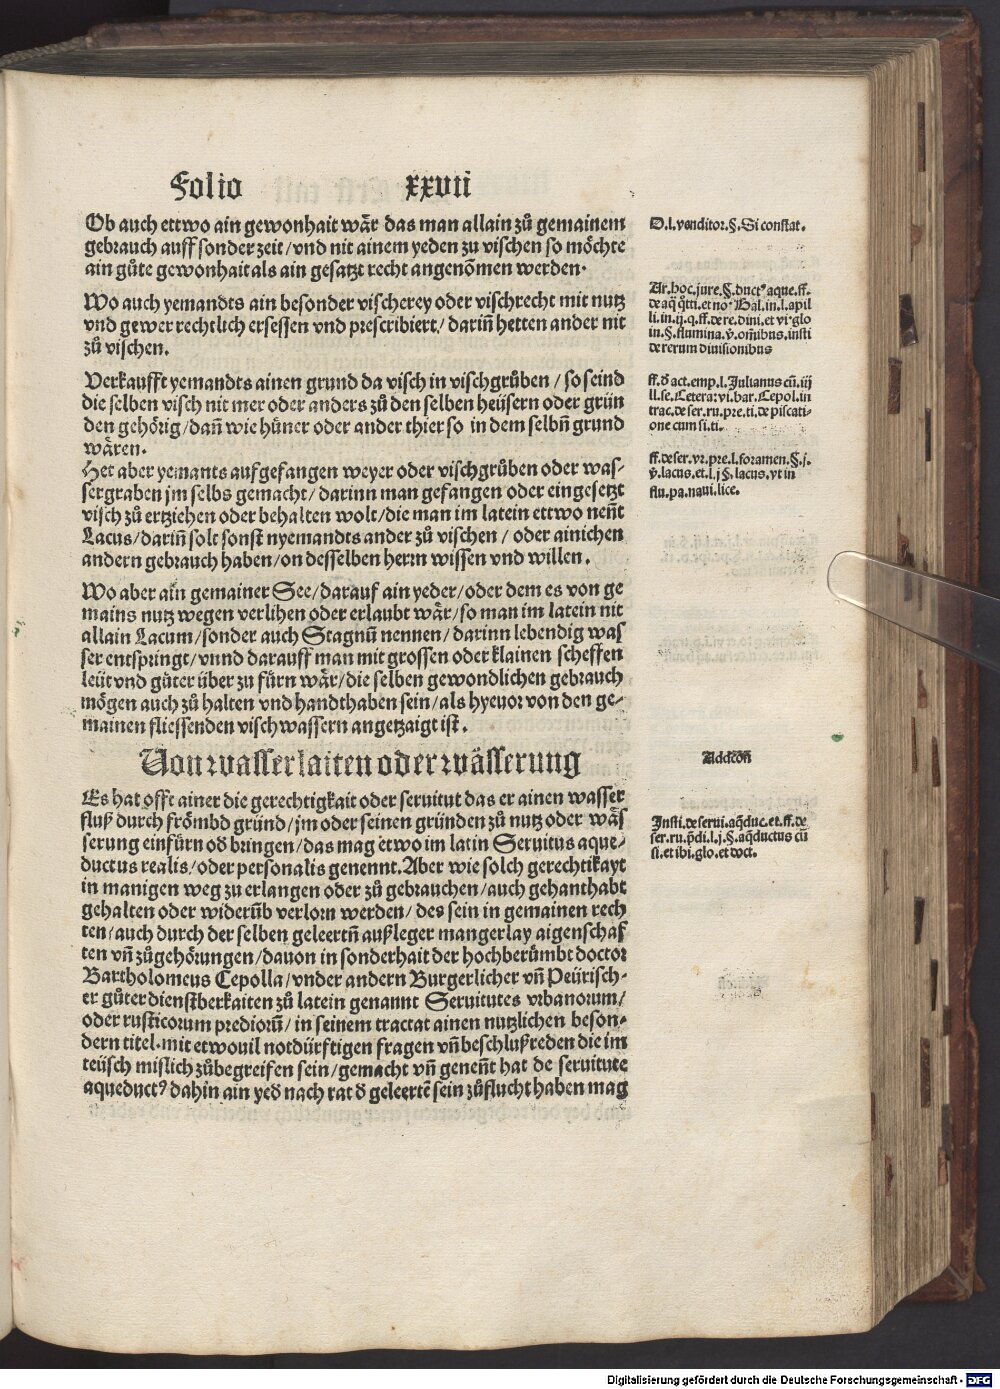 Folio xxvii
Ob auch ettwo ain gewonhait wär das man allain zů gemainem
gebrauch auff sonder zeit/vnd nit ainem yeden zu vischen so möchte
ain gůte gewonhait als ain gesatzt recht angenõmen werden.
Wo auch yemandts ain besonder vischerey oder vischrecht mit nutz
vnd gewer rechtlich ersessen vnd prescribiert/darin̄ hetten ander nit
zů vischen.
Verkaufft yemandts ainen grund da visch in vischgrůben/so seind
die selben visch nit mer oder anders zů den selben heüsern oder grün
den gehörig/dan̄ wie hüner oder ander thier so in dem selbn̄ grund
wären.
Het aber yemants aufgefangen weyer oder vischgrůben oder was-
sergraben jm selbs gemacht/darinn man gefangen oder eingesetzt
visch zů ertziehen oder behalten wolt/die man im latein ettwo nen̄t
Lacus/darin̄ solt sonst nyemandts ander zů vischen/oder ainichen
andern gebrauch haben/on desselben herrn wissen vnd willen.
Wo aber ain gemainer See/darauf ain yeder/oder dem es von ge
mains nutz wegen verlihen oder erlaubt wär/so man im latein nit
allain Lacum/sonder auch Stagnū nennen/darinn lebendig was
ser entspringt/vnnd darauff man mit grossen oder klainen scheffen
leüt vnd gůter über zu fürn wär/die selben gewondlichen gebrauch
mögen auch zů halten vnd handthaben sein/als hyeuor von den ge-
mainen fliessenden vischwassern angetzaigt ist.
Von wasserlaiten oder wässerung
Es hat offt ainer die gerechtigkait oder seruitut das er ainen wasser
fluß durch frömbd gründ/jm oder seinen gründen zů nutz oder wäs
serung einfürn od̄ bringen/das mag etwo im latin Seruitus aque-
ductus realis/oder personalis genennt. Aber wie solch gerechtikayt
in manigen weg zu erlangen oder zů gebrauchen/auch gehanthabt
gehalten oder widerūb verlorn werden/des sein in gemainen rech
ten/auch durch der selben geleertn̄ außleger mangerlay aigenschaf
ten vn̄ zůgehörungen/dauon in sonderhait der hochberůmbt doctor
Bartholomeus Cepolla/vnder andern Burgerlicher vn̄ Peürisch-
er gůter dienstberkaiten zů latein genannt Seruitutes vrbanorum/
oder rusticorum prediorū/in seinem tractat ainen nutzlichen beson-
dern titel mit etwouil notdürftigen fragen vn̄ beschlußreden die im
teüsch mislich zůbegreifen sein/gemacht vn̄ genen̄t hat de seruitute
aqueductꝰ dahin ain yed̄ nach rat d̄ geleertē sein zůflucht haben mag
D.l.venditor.§.Si constat.
Ar.hoc.jure.§.ductꝰ aque.ff.
de aq̄ q̄tti.et noꝰ Bal.in.l.apil
li.in.ij.q.ff.de re.dini.et vi glo
in.§.flumina.v̄.om̄ibus.insti
de rerum diuisionibus
ff.d̄ act.emp.l.Julianus cū.iij
ll.se.Cetera:vi.bar.Cepol.in
trac.de ser.ru.pre.ti.de piscati-
one cum si.ti.
ff.de ser.vr.pre.l.foramen.§.j.
v̄.lacus.et.l.j §.lacus.vt in
flu.pa.naui.lice.
Addcōn̄
Insti.de serui.aq̄duc.et.ff.de
ser.ru.p̄di.l.j.§.aq̄ductus cū
si.et ibi.glo.et doct.
Digitalisierung gefördert durch die Deutsche Forschungsgemeinschaft - DFG